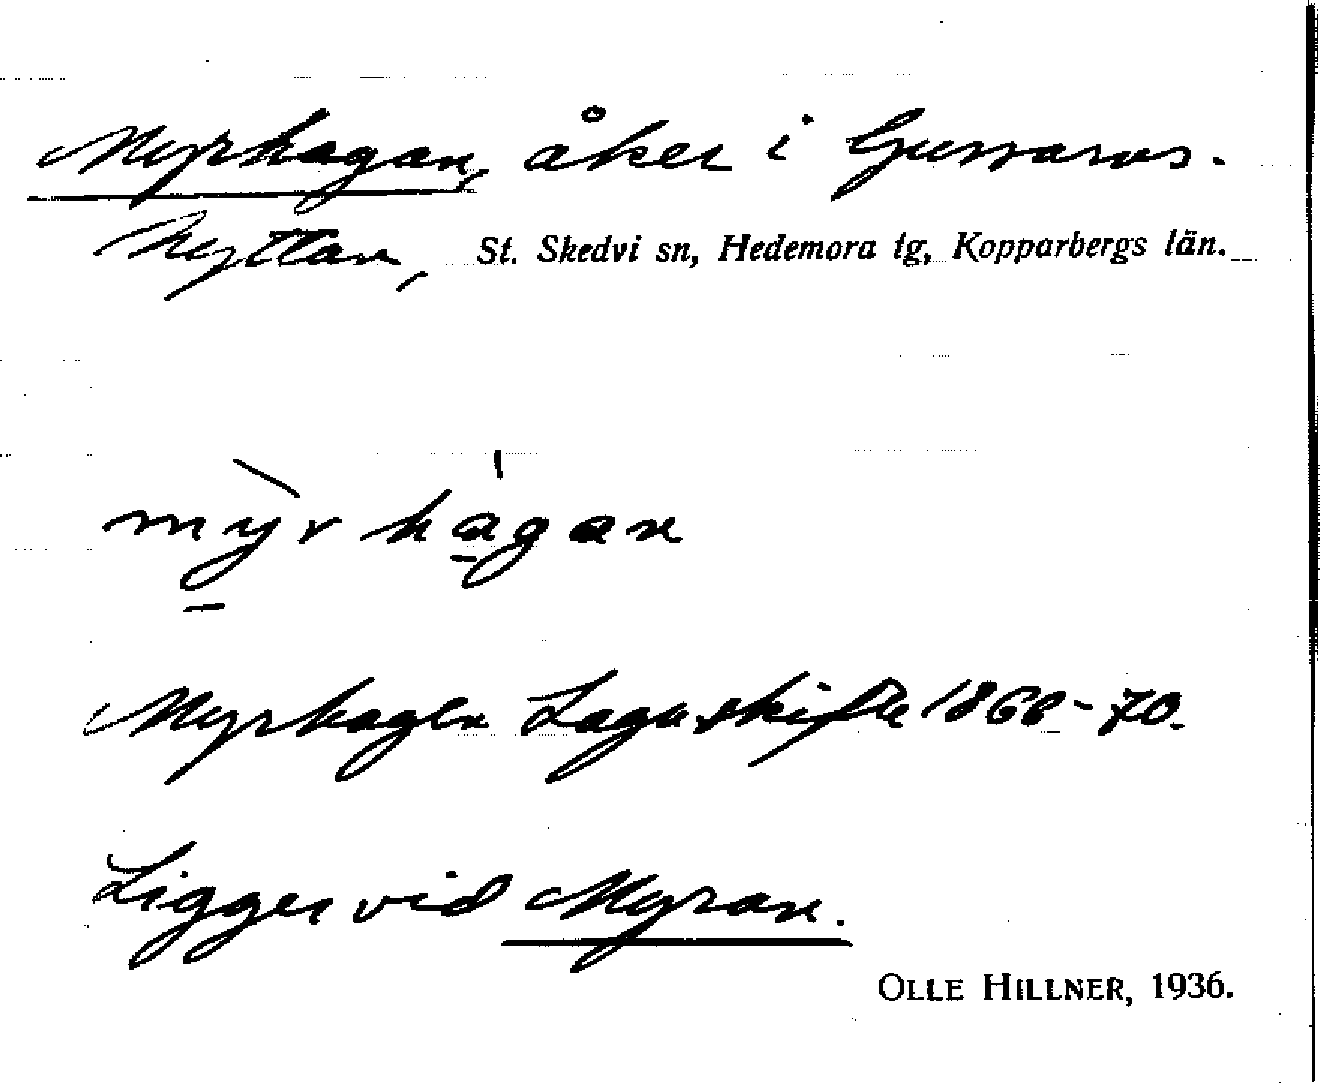 Myrhagan, åker i Gussarvs-
hyttan, St. Skedvi sn, Hedemora tg, Kopparbergs län.
mỳr hágan
Myrhagen Laga skifte 1868-70.
Ligger vid Myran.
OLLE HILLNER, 1936.